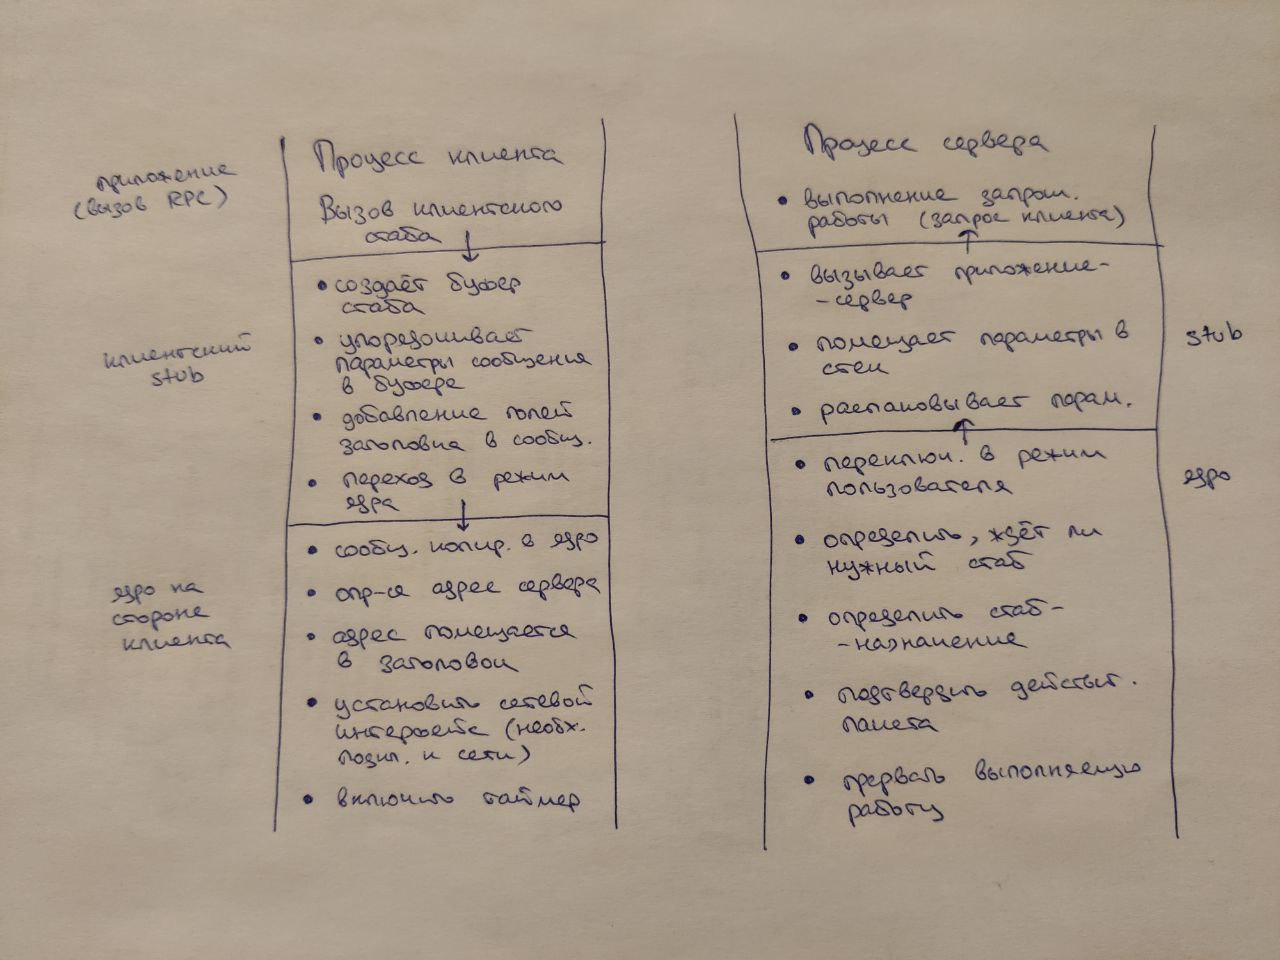 приложение
(вызов RPC)
Процесс клиента
Вызов клиентского
стаба
клиентский
stub
• создаёт буфер
стаба
• упорядочивает
параметры сообщения
в буфере
• добавление полей
заголовка в сообщ.
• переход в режим
ядра
ядро на
стороне
клиента
• сообщ. копир. в ядро
• опр-ся адрес сервера
• адрес помещается
в заголовок
• установить сетевой
интерфейс (необх.
подкл. к сети)
• включить таймер
Процесс сервера
• выполнение запрош.
работы (запрос клиента)
• вызывает приложение-
-сервер
• помещает параметры в
стек
• распаковывает парам.
stub
• переключ. в режим
пользователя
• определить, ждёт ли
нужный стаб
• определить стаб-
-назначение
• подтвердить действит.
пакета
• прервать выполняемую
работу
ядро